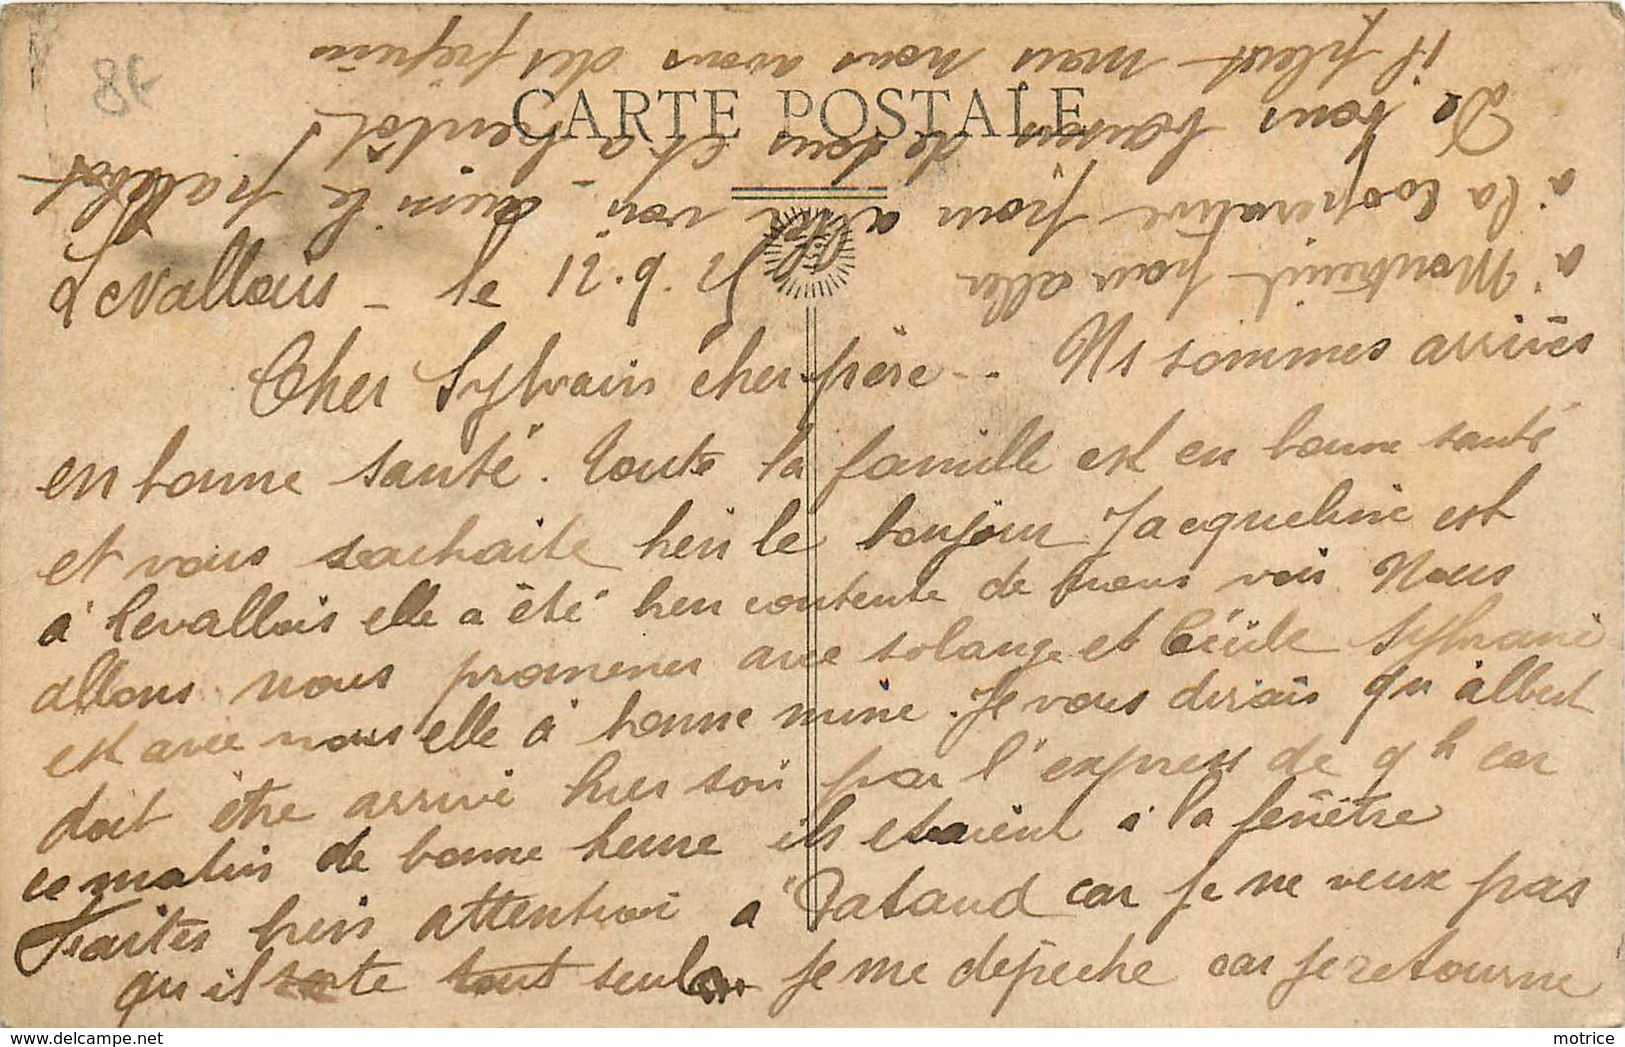 8€
CARTE POSTALE
Levallois - le 12.9.25
Cher Sylvain cher père -. Ns sommes arrivés
en bonne santé. Toute la famille est en bonne santé
et vous souhaite bien le bonjour Jacqueline est
à Levallois elle a été bien contente de nous voir Nous
allons nous promener avec Solange et Cécile Sylvani
est avec nous elle à bonne mine. Je vous dirais qu'albert
doit être arrivé hier soir par l'express de 9h car
ce matin de bonne heure ils etaient à la fenêtre
Faites bien attention a "Bataud car je ne veux pas
qu'il sorte tout seul je me dépêche car je retourne
à Montreuil pour aller
à la Cooperative pour aller voir si le
De bons baisers de tous et a bentôt!
il pleut mais nous avons des
motrice